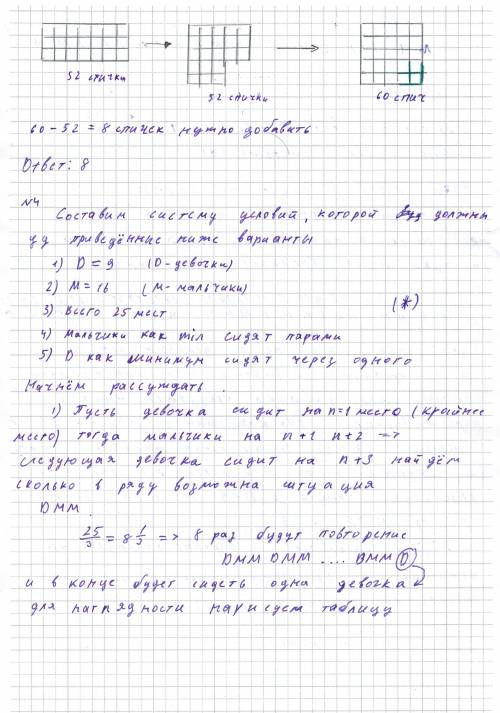 52 спички 52 спички 60 спич
60 - 52 = 8 спичек нужно добавить
Ответ: 8
№4
Составим систему условий, которой должны
уд приведённые ниже варианты
1) D = 9 (D - девочки)
2) M = 16 (М - мальчики)
3) Всего 25 мест (*)
4) Мальчики как min сидят парами
5) D как минимум сидят через одного
Начнём рассуждать.
1) Пусть девочка сидит на n=1 место (крайнее
место) тогда мальчики на n+1 n+2 =>
следующая девочка сидит на n+3 найдём
сколько в ряду возможна ситуация
DMM.
25/3 = 8 1/3 => 8 раз будут повторение
DMM DMM .... DMM D
и в конце будет сидеть одна девочка
для наглядности нарисуем таблицу